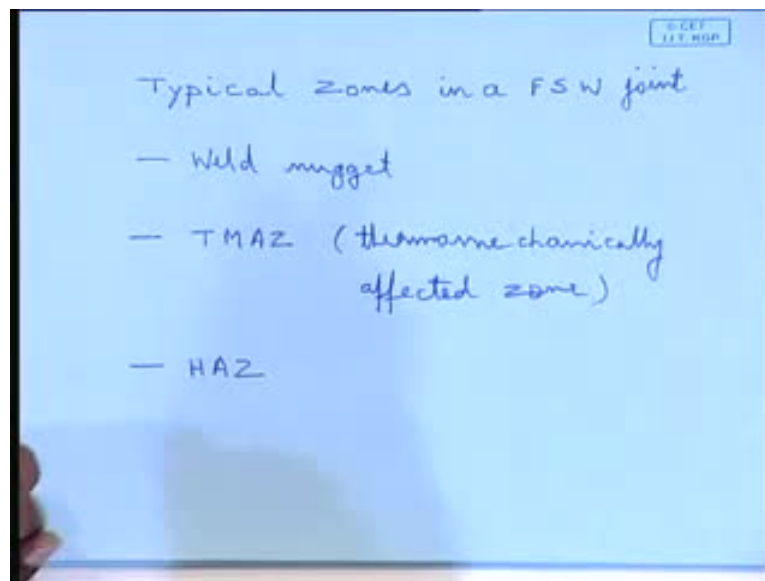 © CET
I.I.T. KGP
Typical zones in a FSW joint
— Weld nugget
— TMAZ (thermomechanically
affected zone)
— HAZ